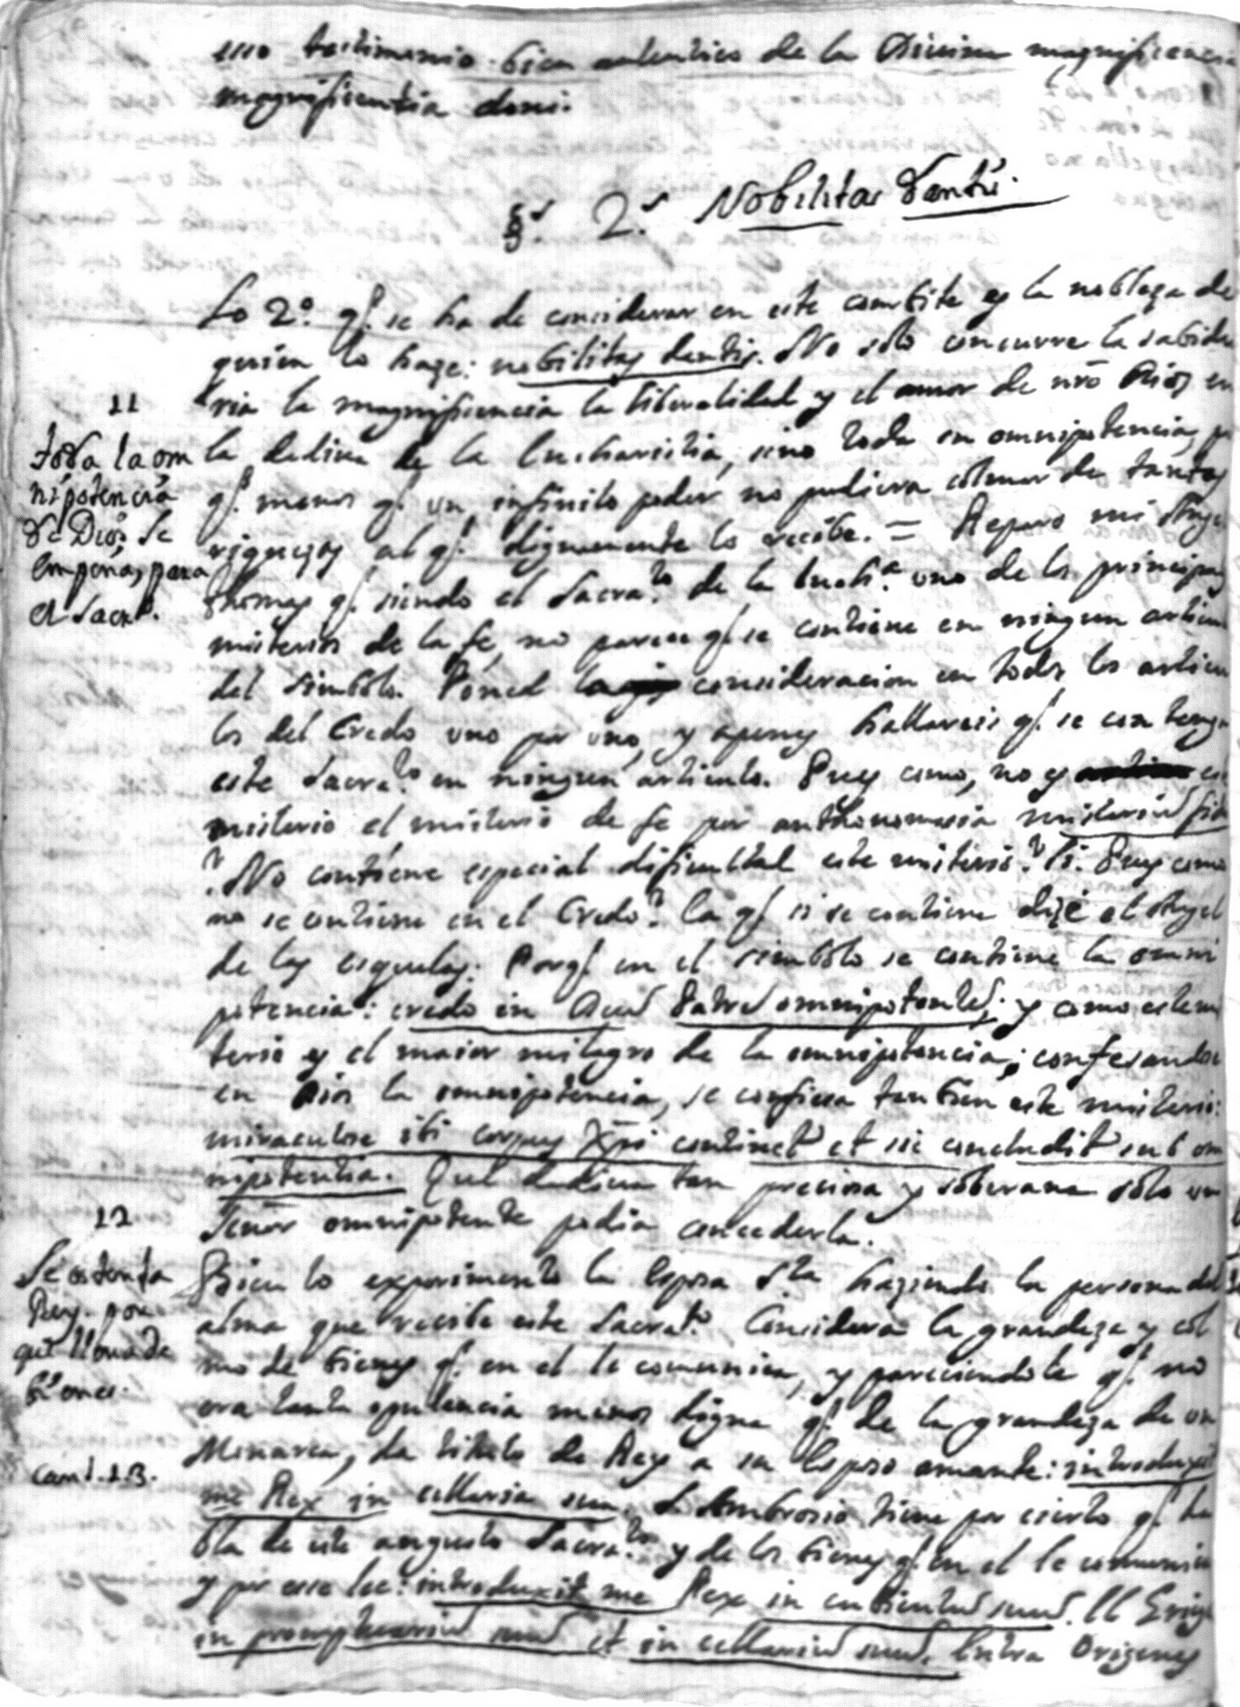 uno testimonio bien autentico de la Divina magnificencia
magnificentia doni.
§ 2. Nobilitas Dantis.
Lo 2º. q. se ha de considerar en este combite es la nobleza de
quien lo haze: nobilitas dantis. No solo concurre la sabidu
ria la magnificencia la liberalidad y el amor de nrō Dios en
11
toda la om
nipotencia
de Dios se
empeña, para
el Sacrto.
la dadiva de la Eucharistia, sino toda su omnipotencia, p
q. menos q. un infinito poder no pudiera colmar de tantas
riquezas al q. dignamente lo recibe. = Reparo mi Ange
Thomas q. siendo el Sacrato. de la Eucha. uno de los principa
misterios de la fe, no parece q. se contiene en ningun articu
del simbolo. Poned la consideracion en todos los articu
los del Credo uno por uno, y apenas hallareis q. se contenga
este Sacrato. en ningun articulo. Pues como, no es es
misterio el misterio de fe por anthonomasia misteriū fid
? No contiene especial dificultad este misterio? Si. Pues como
no se contiene en el Credo? Ca q. si se contiene dize el Angel
de las esquelas: Porq. en el simbolo se contiene la omni
potencia: credo in Deū Patrē omnipotentē; y como este mi
terio es el maior milagro de la omnipotencia; confesandose
en Dios la omnipotencia, se confiesa tanbien este misterio:
miraculose ibi corpus Xpi continet et sic concludit sub om
nipotentia. Que dadiva tan preciosa y soberana solo un
Señor omnipotente podia concederla.
12
Se ostenta
Rey. por
que llena de
bienes.
Bien lo experimento la Esposa Sta. haziendo la persona del
alma que recibe este Sacrato. Considera la grandeza y col
mo de bienes q. en el le comunica, y pareciendole q. no
era tanta opulencia menos digna q. de la grandeza de un
Monarca, da titulo de Rey a su Esposo amante: introduxit
Cant. 1.3.
me Rex in cellaria sua. S. Ambrosio tiene por cierto q. ha
bla de este augusto Sacrato. y de los bienes q. en el le comunica
y por esso lee: introduxit me Rex in cubiculū suū. El Grieg
in promptuariū suū et in cellariū suū. Entra Origenes